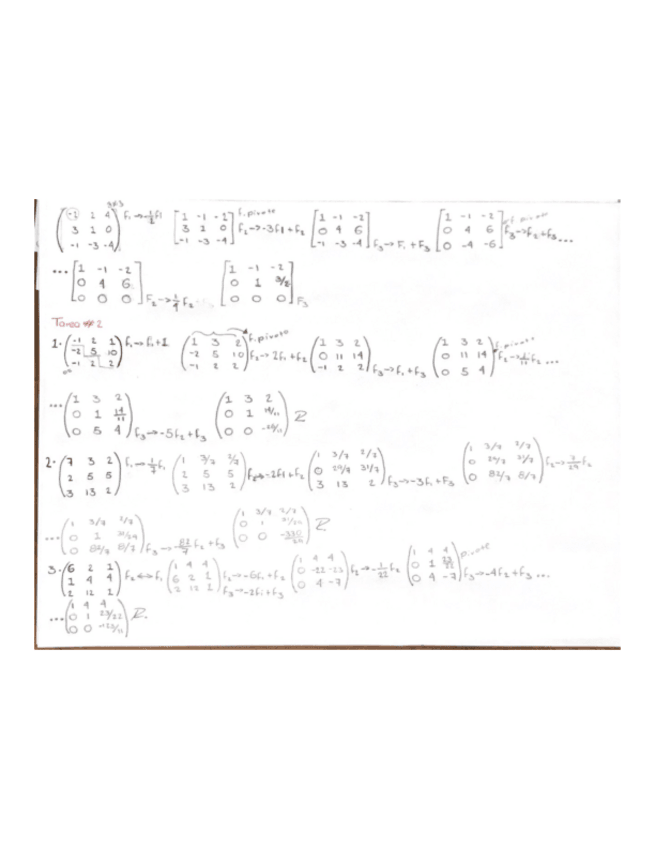 3x3
(-2 2 4; 3 1 0; -1 -3 -4) f₁→-½f1 [1 -1 -2; 3 1 0; -1 -3 -4] f. pivote f₂→-3f1+f₂ [1 -1 -2; 0 4 6; -1 -3 -4] f₃→F₁+F₃ [1 -1 -2; 0 4 6; 0 -4 -6] f. pivote f₃→f₂+f₃ ...
... [1 -1 -2; 0 4 6; 0 0 0] F₂→¼F₂ [1 -1 -2; 0 1 3/2; 0 0 0] F₃
Tarea #2
1· (-1 2 1; -2 5 10; -1 2 2) f₁→f₁+1 (1 3 2; -2 5 10; -1 2 2) f. pivote f₂→2f₁+f₂ (1 3 2; 0 11 14; -1 2 2) f₃→f₁+f₃ (1 3 2; 0 11 14; 0 5 4) f. pivote f₂→1/11 f₂ ...
... (1 3 2; 0 1 14/11; 0 5 4) f₃→-5f₂+f₃ (1 3 2; 0 1 14/11; 0 0 -26/11) R
2· (7 3 2; 2 5 5; 3 13 2) f₁→1/7 f₁ (1 3/7 2/7; 2 5 5; 3 13 2) f₂→-2f1+f₂ (1 3/7 2/7; 0 29/7 31/7; 3 13 2) f₃→-3f₁+F₃ (1 3/7 2/7; 0 29/7 31/7; 0 82/7 8/7) f₂→7/29 f₂
... (1 3/7 2/7; 0 1 31/29; 0 82/7 8/7) f₃→-82/7 f₂+f₃ (1 3/7 2/7; 0 1 31/29; 0 0 -330/29) R
3· (6 2 1; 1 4 4; 2 12 1) f₂↔f₁ (1 4 4; 6 2 1; 2 12 1) f₂→-6f₁+f₂ f₃→-2f₁+f₃ (1 4 4; 0 -22 -23; 0 4 -7) f₂→-1/22 f₂ (1 4 4; 0 1 23/22; 0 4 -7) pivote f₃→-4f₂+f₃ ...
... (1 4 4; 0 1 23/22; 0 0 -123/11) R.